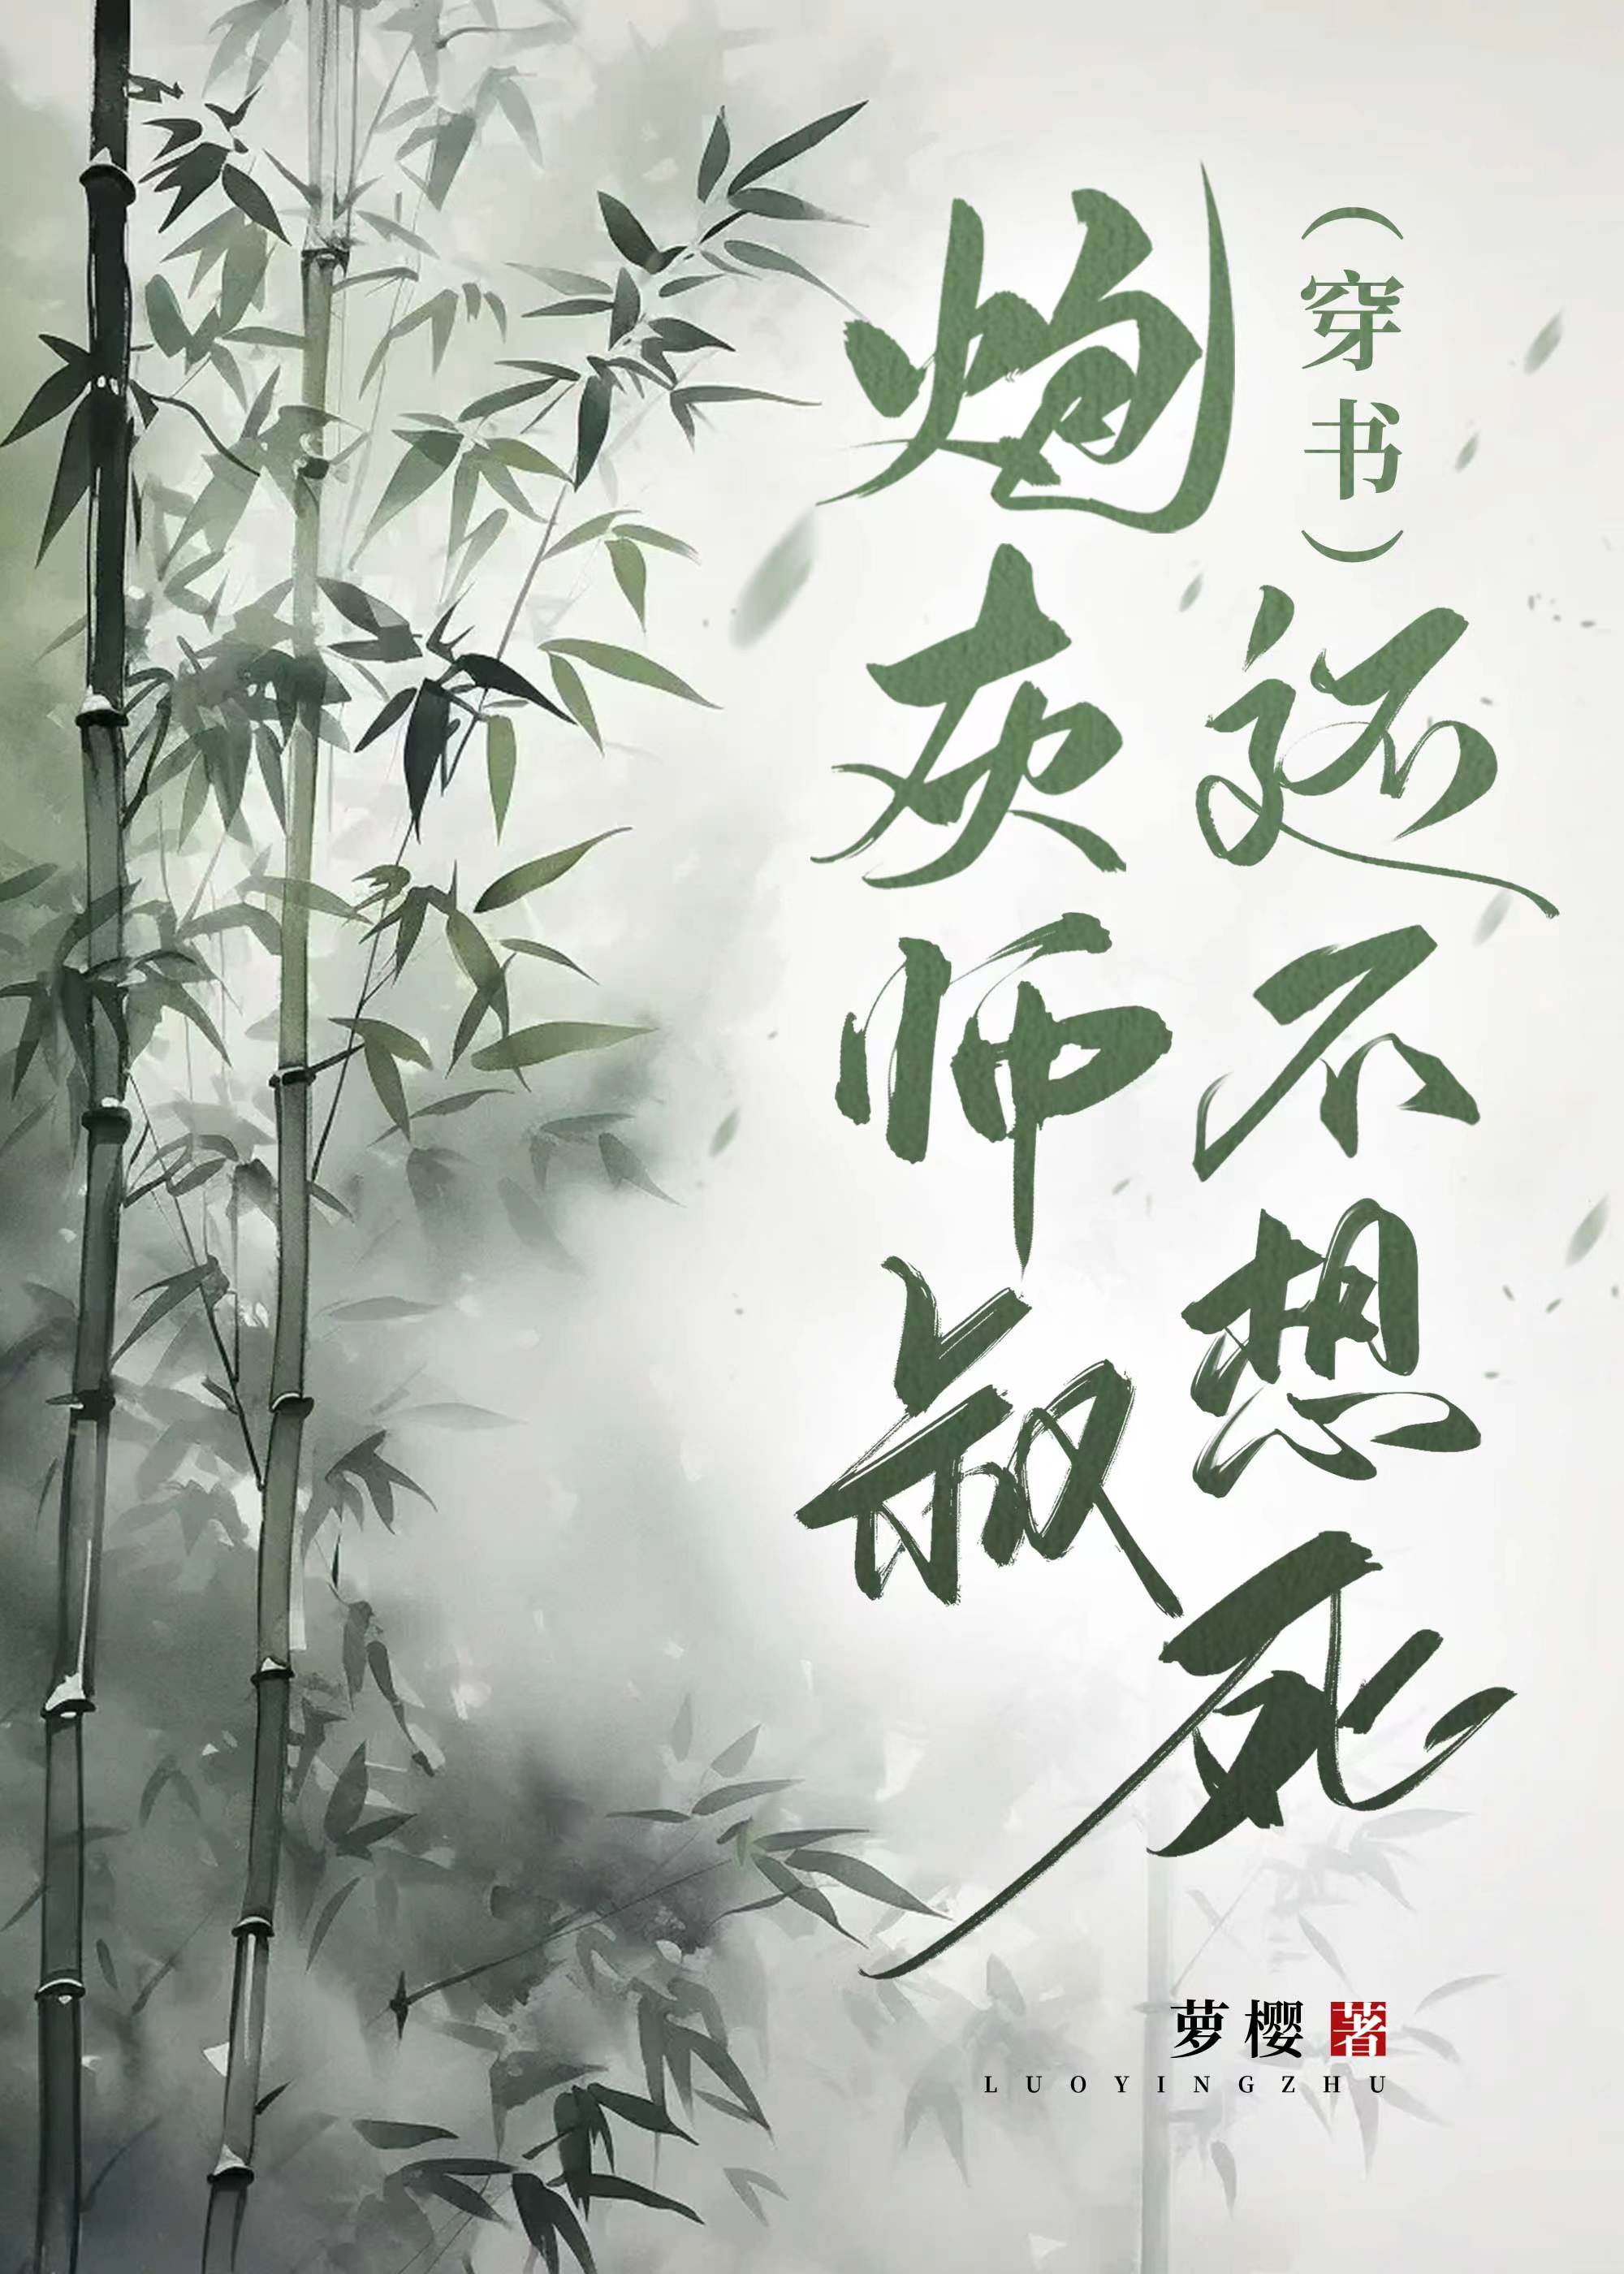 炮灰师叔
还不想死
（穿书）
萝樱 著
LUOYINGZHU